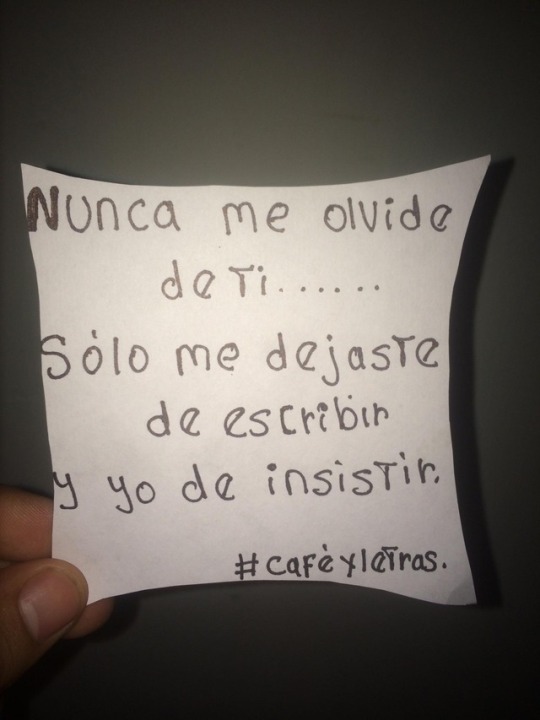 Nunca me olvide
de Ti......
Sólo me dejasTe
de escribir
y yo de insisTir.
#caféyleTras.